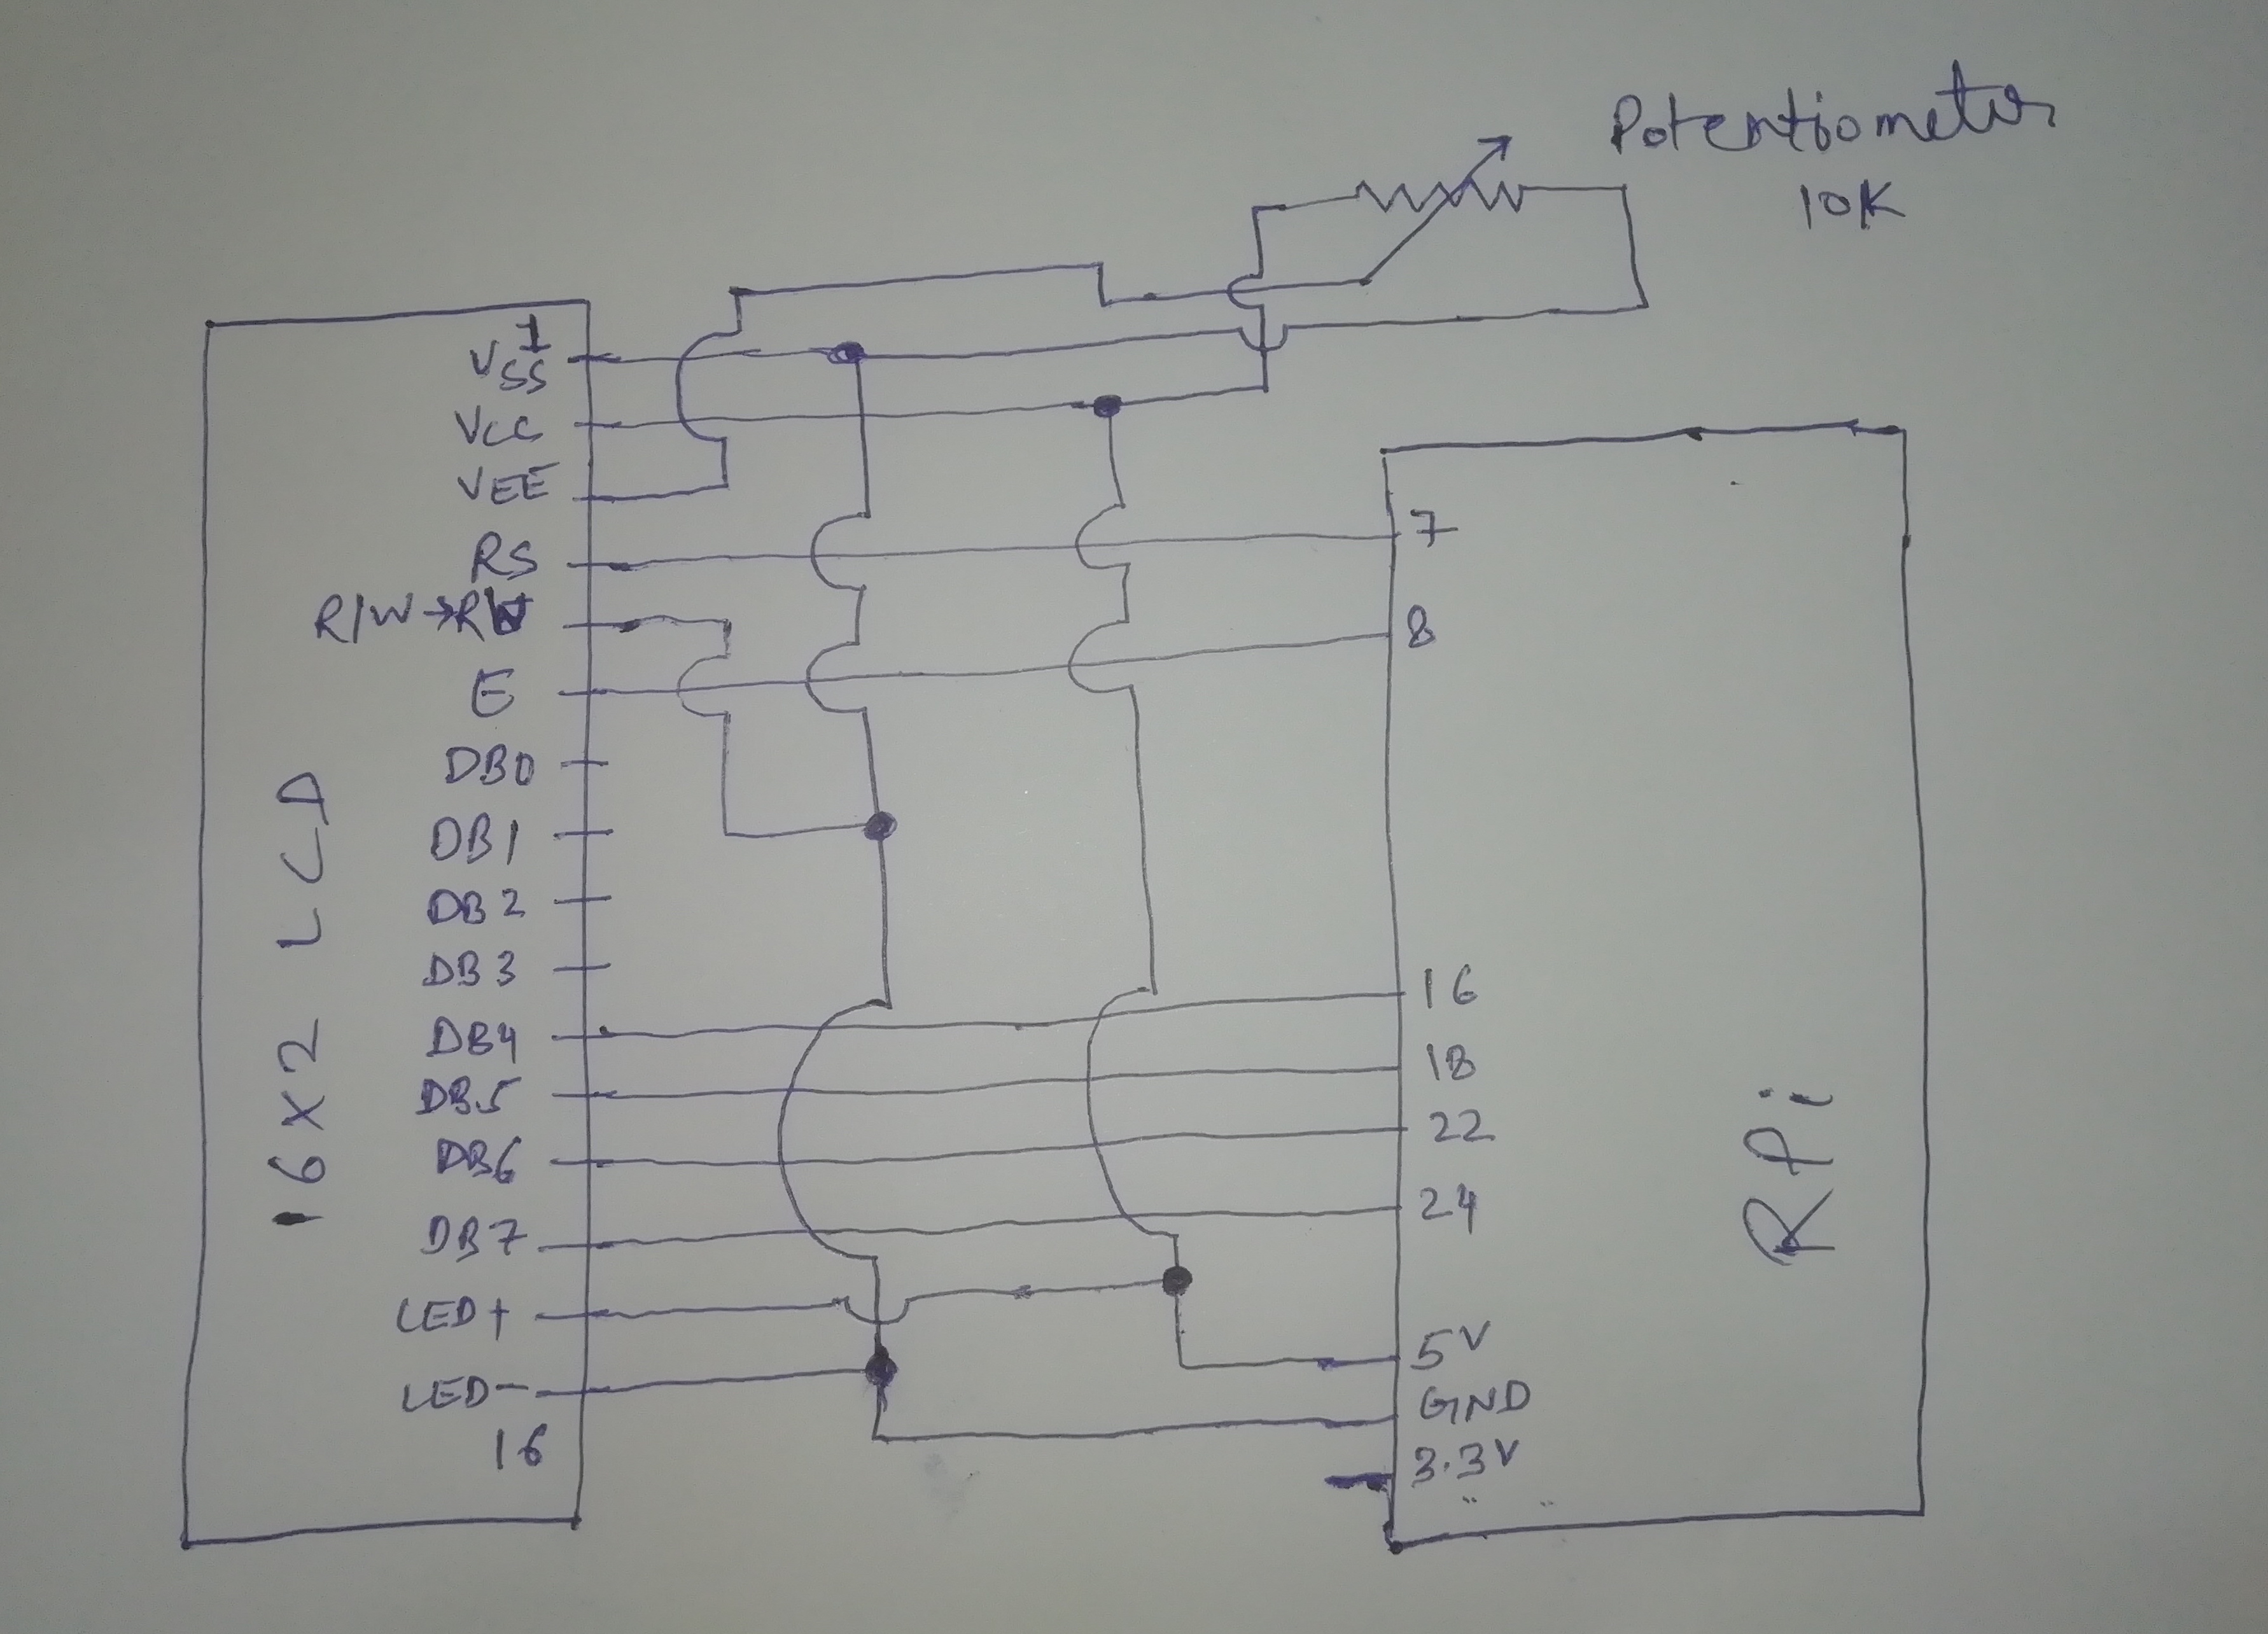 Potentiometer
10K
1
VSS
VCC
VEE
RS
R/W→RW
E
DB0
DB1
DB2
DB3
DB4
DB5
DB6
DB7
LED+
LED-
16
16X2 LCD
7
8
16
18
22
24
5V
GND
3.3V
RPi